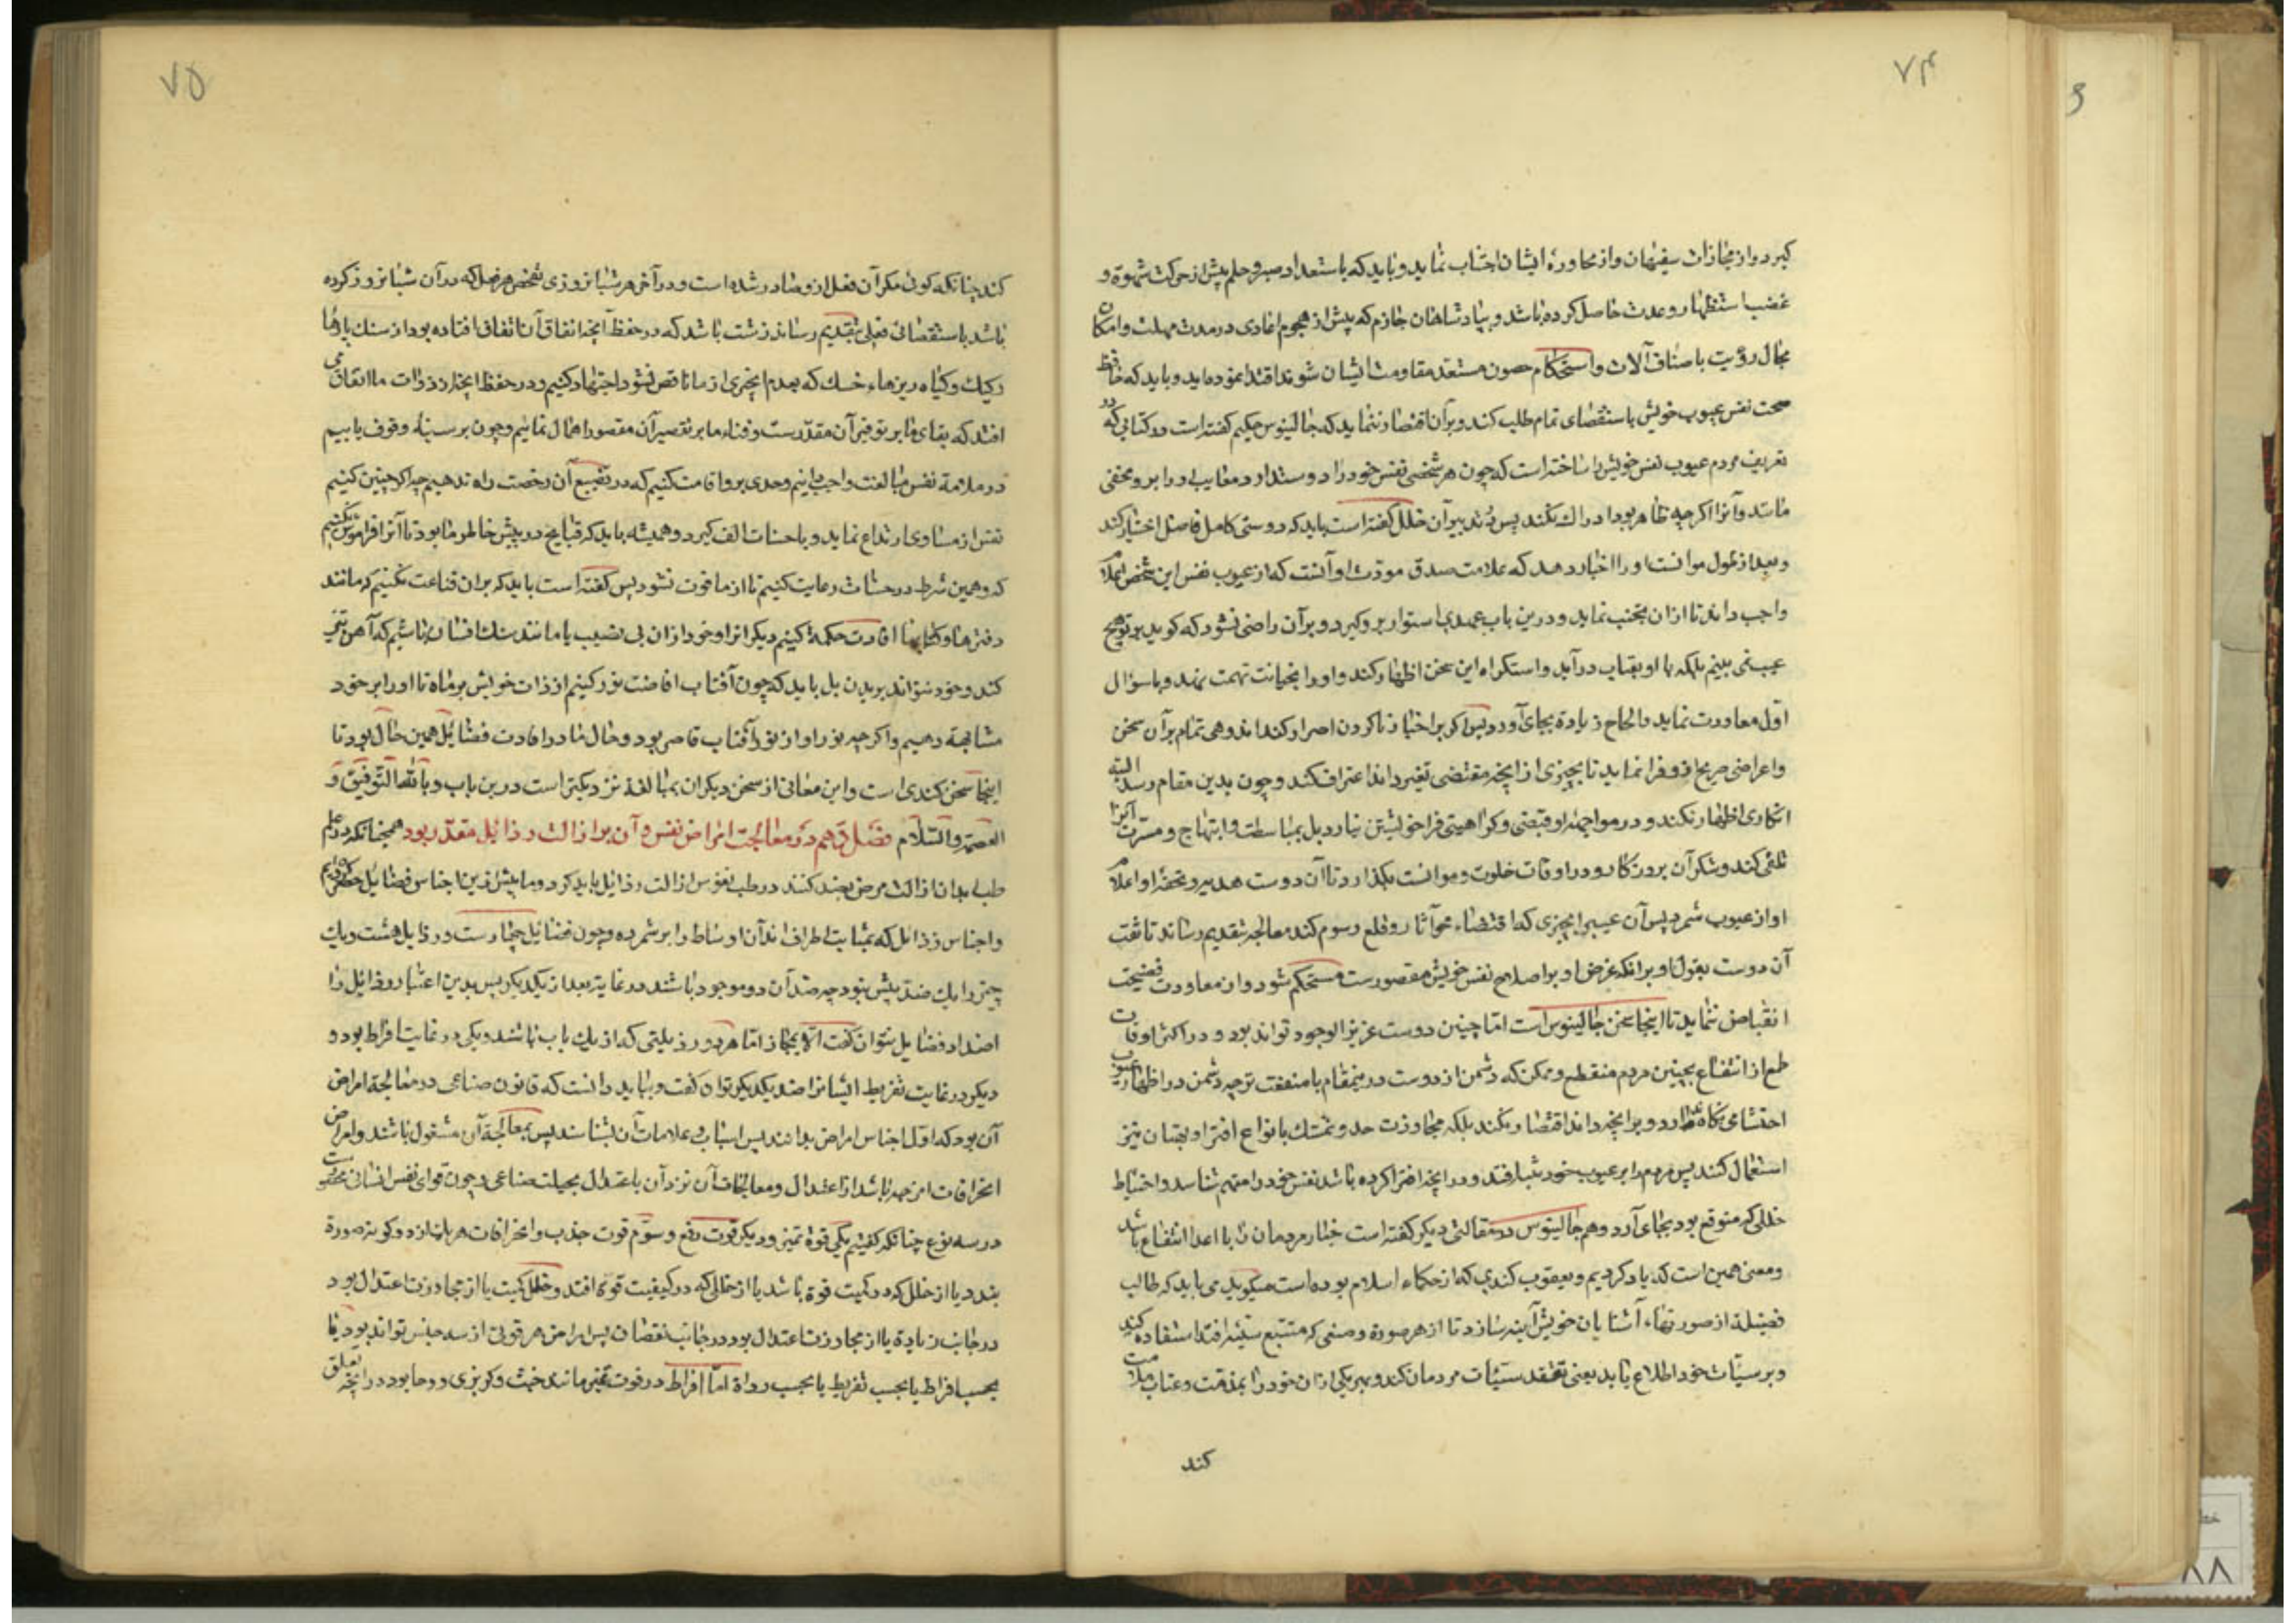 ۷۴
گیرد و از مجازات سفیهان و از محاورهٔ ایشان اجتناب نماید و باید که باستعداد صبر و حلم پیش از حرکت شهوة و
غضب استظهار و عدت حاصل کرده باشد و بپادشاهان حازم که پیش از هجوم اعادی در مدت مهلت و امکان
مجال رؤیت باصناف آلات و استحکام حصون مستعد مقاومت ایشان شوند اقتدا نموده اید و باید که حافظ
صحت نفس عیوب خویش باستقصای تمام طلب کند و بر آن اقتصار ننماید که جالینوس حکیم گفته است در کتابی که در
تعریف مردم عیوب نفس خویش را ساخته است که چون هر شخصی نفس خود را دوست دارد معایب او را برو مخفی
ماند و آنرا اگرچه ظاهر بود ادراک نکند پس در تدبیر آن خلل گفته است باید که دوستی کامل فاضل اختیار کند
و بعد از طول موانست او را اخبار دهد که علامت صدق مودت او آنست که از عیوب نفس این شخص اعلام
واجب داند تا ازان تجنب نماید و درین باب عهدی استوار برو گیرد و بر آن راضی نشود که گوید بر تو هیچ
عیب نمی بینم بلکه با او بعتاب درآید و استکراه این سخن اظهار کند و او را بخیانت تهمت نهد و با سؤال
اول معاودت نماید و الحاح زیادة بجای آورد پس اگر بر اخبار ناکردن اصرار کند اندوهی تمام بر آن سخن
و اعراضی صریح ازو فرا نماید تا بچیزی از آنچه مقتضی تغیر داند اعتراف کند و چون بدین مقام رسد البته
انکاری اظهار نکند و در مواجهه او قبضی و کراهیتی فرا خویشتن نیارد بل بمباسطت و ابتهاج و مسرت آنرا
تلقی کند و شکر آن بروزکار و در اوقات خلوت و موانست بگذارد تا آن دوست هدیه و تحفهٔ او اعلام
او از عیوب شمرد پس آن عیب را بچیزی که اقتضاء محو آثار و قلع رسوم کند معالجه بتقدیم رساند تا ثقت
آن دوست بقول او بر آنکه غرض او بر اصلاح نفس خویش مقصورست مستحکم شود و از معاودت نصیحت
انقباض ننماید تا اینجا سخن جالینوس است اما چنین دوست عزیز الوجود تواند بود و در اکثر اوقات
طمع از انتفاع بچنین مردم منقطع و ممکن که دشمن از دوست درین مقام با منفعت تر چه دشمن در اظهار عیوب
احتشامی نگاه ندارد و بر آنچه داند اقتصار نکند بلکه مجاوزت حد و تمسک بانواع افترا و بهتان نیز
استعمال کند پس مردم را بر عیوب خود تنبیه افتد و در آنچه افترا کرده باشد نفس خود را متهم شناسد و احتیاط
خللی که متوقع بود بجای آرد و هم جالینوس در مقالتی دیگر گفته است خیار مردمان را با اعدا انتفاع باشد
و معنی همین است که یاد کردیم و یعقوب کندی که از حکماء اسلام بوده است میگوید می باید که طالب
فضیلة از صورتهاء آشنایان خویش آینه سازد تا از هر صورة و صنفی که مستتبع سیئهٔ افتد استفاده کند
و بر سیآت خود اطلاع یابد یعنی تفقد سیئات مردمان کند و بهر یکی ازان خود را بمذمت و عتاب ملامت
کند
۷۵
کند چنانکه گوئی مگر آن فعل ازو صادر شده است و در آخر هر شبانروزی تفحص هر فعل که در آن شبانروز کرده
باشد باستقصائی فعلی بتقدیم رساند زشت باشد که در حفظ آنچه انفاق آن اتفاق افتاده بود از سنگ پارها
رکیک و گیاه ریزهاء خشک که بعدم آن چیزی از ما ناقص نشود اجتهاد کنیم و در حفظ آنچه از ذوات ما انفاق می
افتد که بقای ما بر توفیر آن مقدرست و فناء ما بر تقصیر آن مقصور اهمال نمائیم و چون بر سیئهٔ وقوف یابیم
در ملامة نفس مبالغت واجب دانیم و حدی برو اقامت کنیم که در تضییع آن رخصت راه ندهیم چه اگر چنین کنیم
نفس از مساوی ارتداع نماید و باحسنات الف گیرد و همیشه باید که قبایح در پیش خاطر ما بود تا آنرا فراموش نکنیم
که و همین شرط در حسنات رعایت کنیم تا از ما فوت نشود پس گفته است باید که بران قناعت نکنیم که مانند
دفترها و کتابها افادت حکمة کنیم دیگرانرا و خود ازان بی نصیب یا مانند سنگ افسان باشیم که آهن تیز
کند و خود نتواند بریدن بل باید که چون آفتاب افاضت نور کنیم از ذات خویش بر ماه تا او را بر خود
مشابهة دهیم و اگرچه نور او از نور آفتاب قاصر بود و حال ما در افادت فضائل همین حال بود تا
اینجا سخن کندی است و این معانی از سخن دیگران بمبالغه نزدیکتر است درین باب و بالله التوفیق و
العصمة والسلام فصل دهم در معالجت امراض نفس و آن بر ازالت رذائل مقدر بود همچنانکه در علم
طب ابدان ازالت مرض بضد کنند در طب نفوس ازالت رذائل باید کرد و ما پیش ازین اجناس فضائل حصر کردیم
و اجناس رذائل که بمثابت اطراف اند آن اوساط را برشمرده و چون فضائل چهارست و رذایل هشت و یک
چیز را یک ضد بیش نبود چه ضد آن دو موجود باشد در غایة بعد از یکدیگر پس بدین اعتبار رذائل را
اضداد فضایل نتوان گفت الا بمجاز اما هر دو رذیلتی که از یک باب باشند و یکی در غایت افراط بود و
دیگر در غایت تفریط ایشانرا ضد یکدیگر توان گفت و بباید دانست که قانون صناعی در معالجة امراض
آن بود که اول اجناس امراض بدانند پس اسباب و علامات آن بشناسند پس بمعالجة آن مشغول باشند و امراض
انحرافات امزجه باشد از اعتدال و معالجات آن رد آن باعتدال بحیلت صناعی و چون قوای نفس انسانی محصورست
در سه نوع چنانکه گفتیم یکی قوة تمیز و دیگر قوت دفع و سوم قوت جذب و انحرافات هر یک از دو گونه صورة
بندد یا از خلل که در کمیت قوة باشد یا از خللی که در کیفیت قوة افتد و خلل کمیت یا از تجاوزت اعتدال بود
در جانب زیادة یا از مجاوزت اعتدال بود در جانب نقصان پس امراض هر قوتی از سه جنس تواند بود یا
بحسب افراط یا بحسب تفریط یا بحسب رداة اما افراط در قوت تمیز مانند خبث و گربزی و دها بود در آنچه تعلق